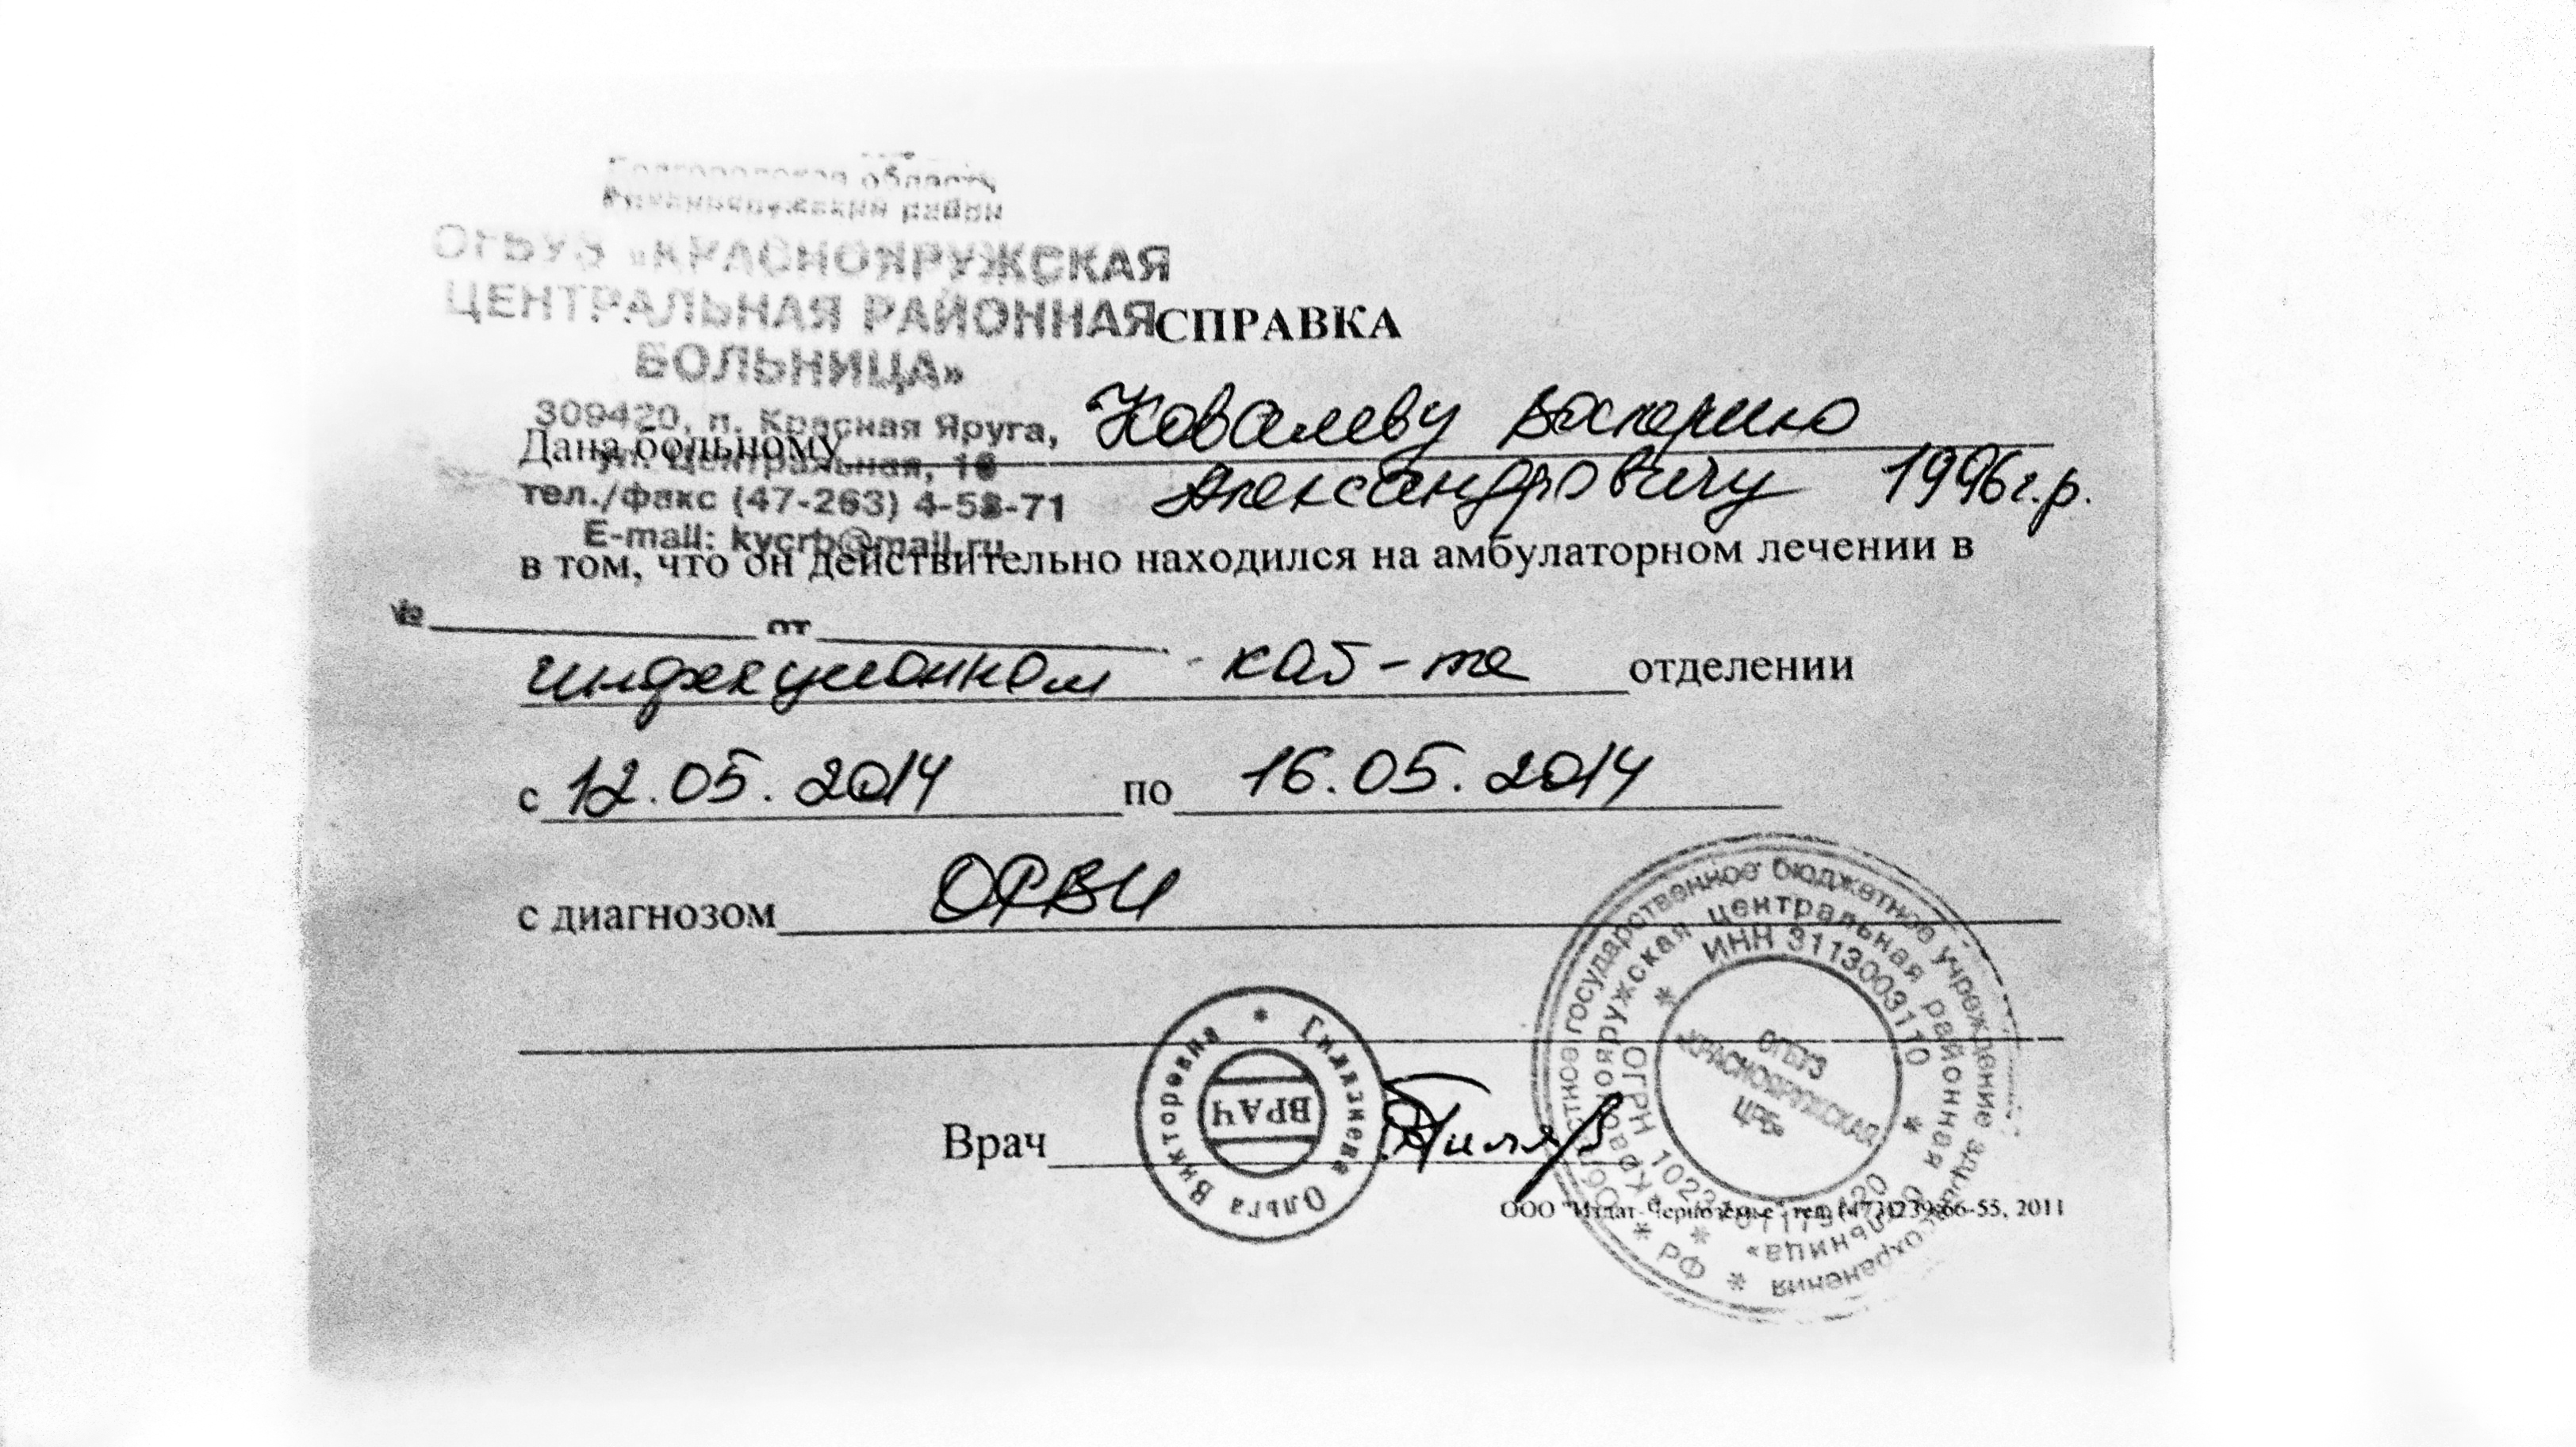 область
район
ОГБУЗ «КРАСНОЯРУЖСКАЯ
ЦЕНТРАЛЬНАЯ РАЙОННАЯ
БОЛЬНИЦА»
309420, п. Красная Яруга,
ул. Центральная, 16
тел./факс (47-263) 4-58-71
E-mail: kycrb@mail.ru
№ от
СПРАВКА
Дана больному Ковалеву Валерию
Александровичу 1996г.р.
в том, что он действительно находился на амбулаторном лечении в
инфекционном каб-те отделении
с 12.05.2014 по 16.05.2014
с диагнозом ОРВИ
Врач
ВРАЧ
Ольга Викторовна
государственное бюджетное учреждение здравоохранения
«Краснояружская центральная районная больница»
ИНН 3113003110
ОГРН
ОГБУЗ
«КРАСНОЯРУЖСКАЯ
ЦРБ»
РФ
ООО 66-55, 2011